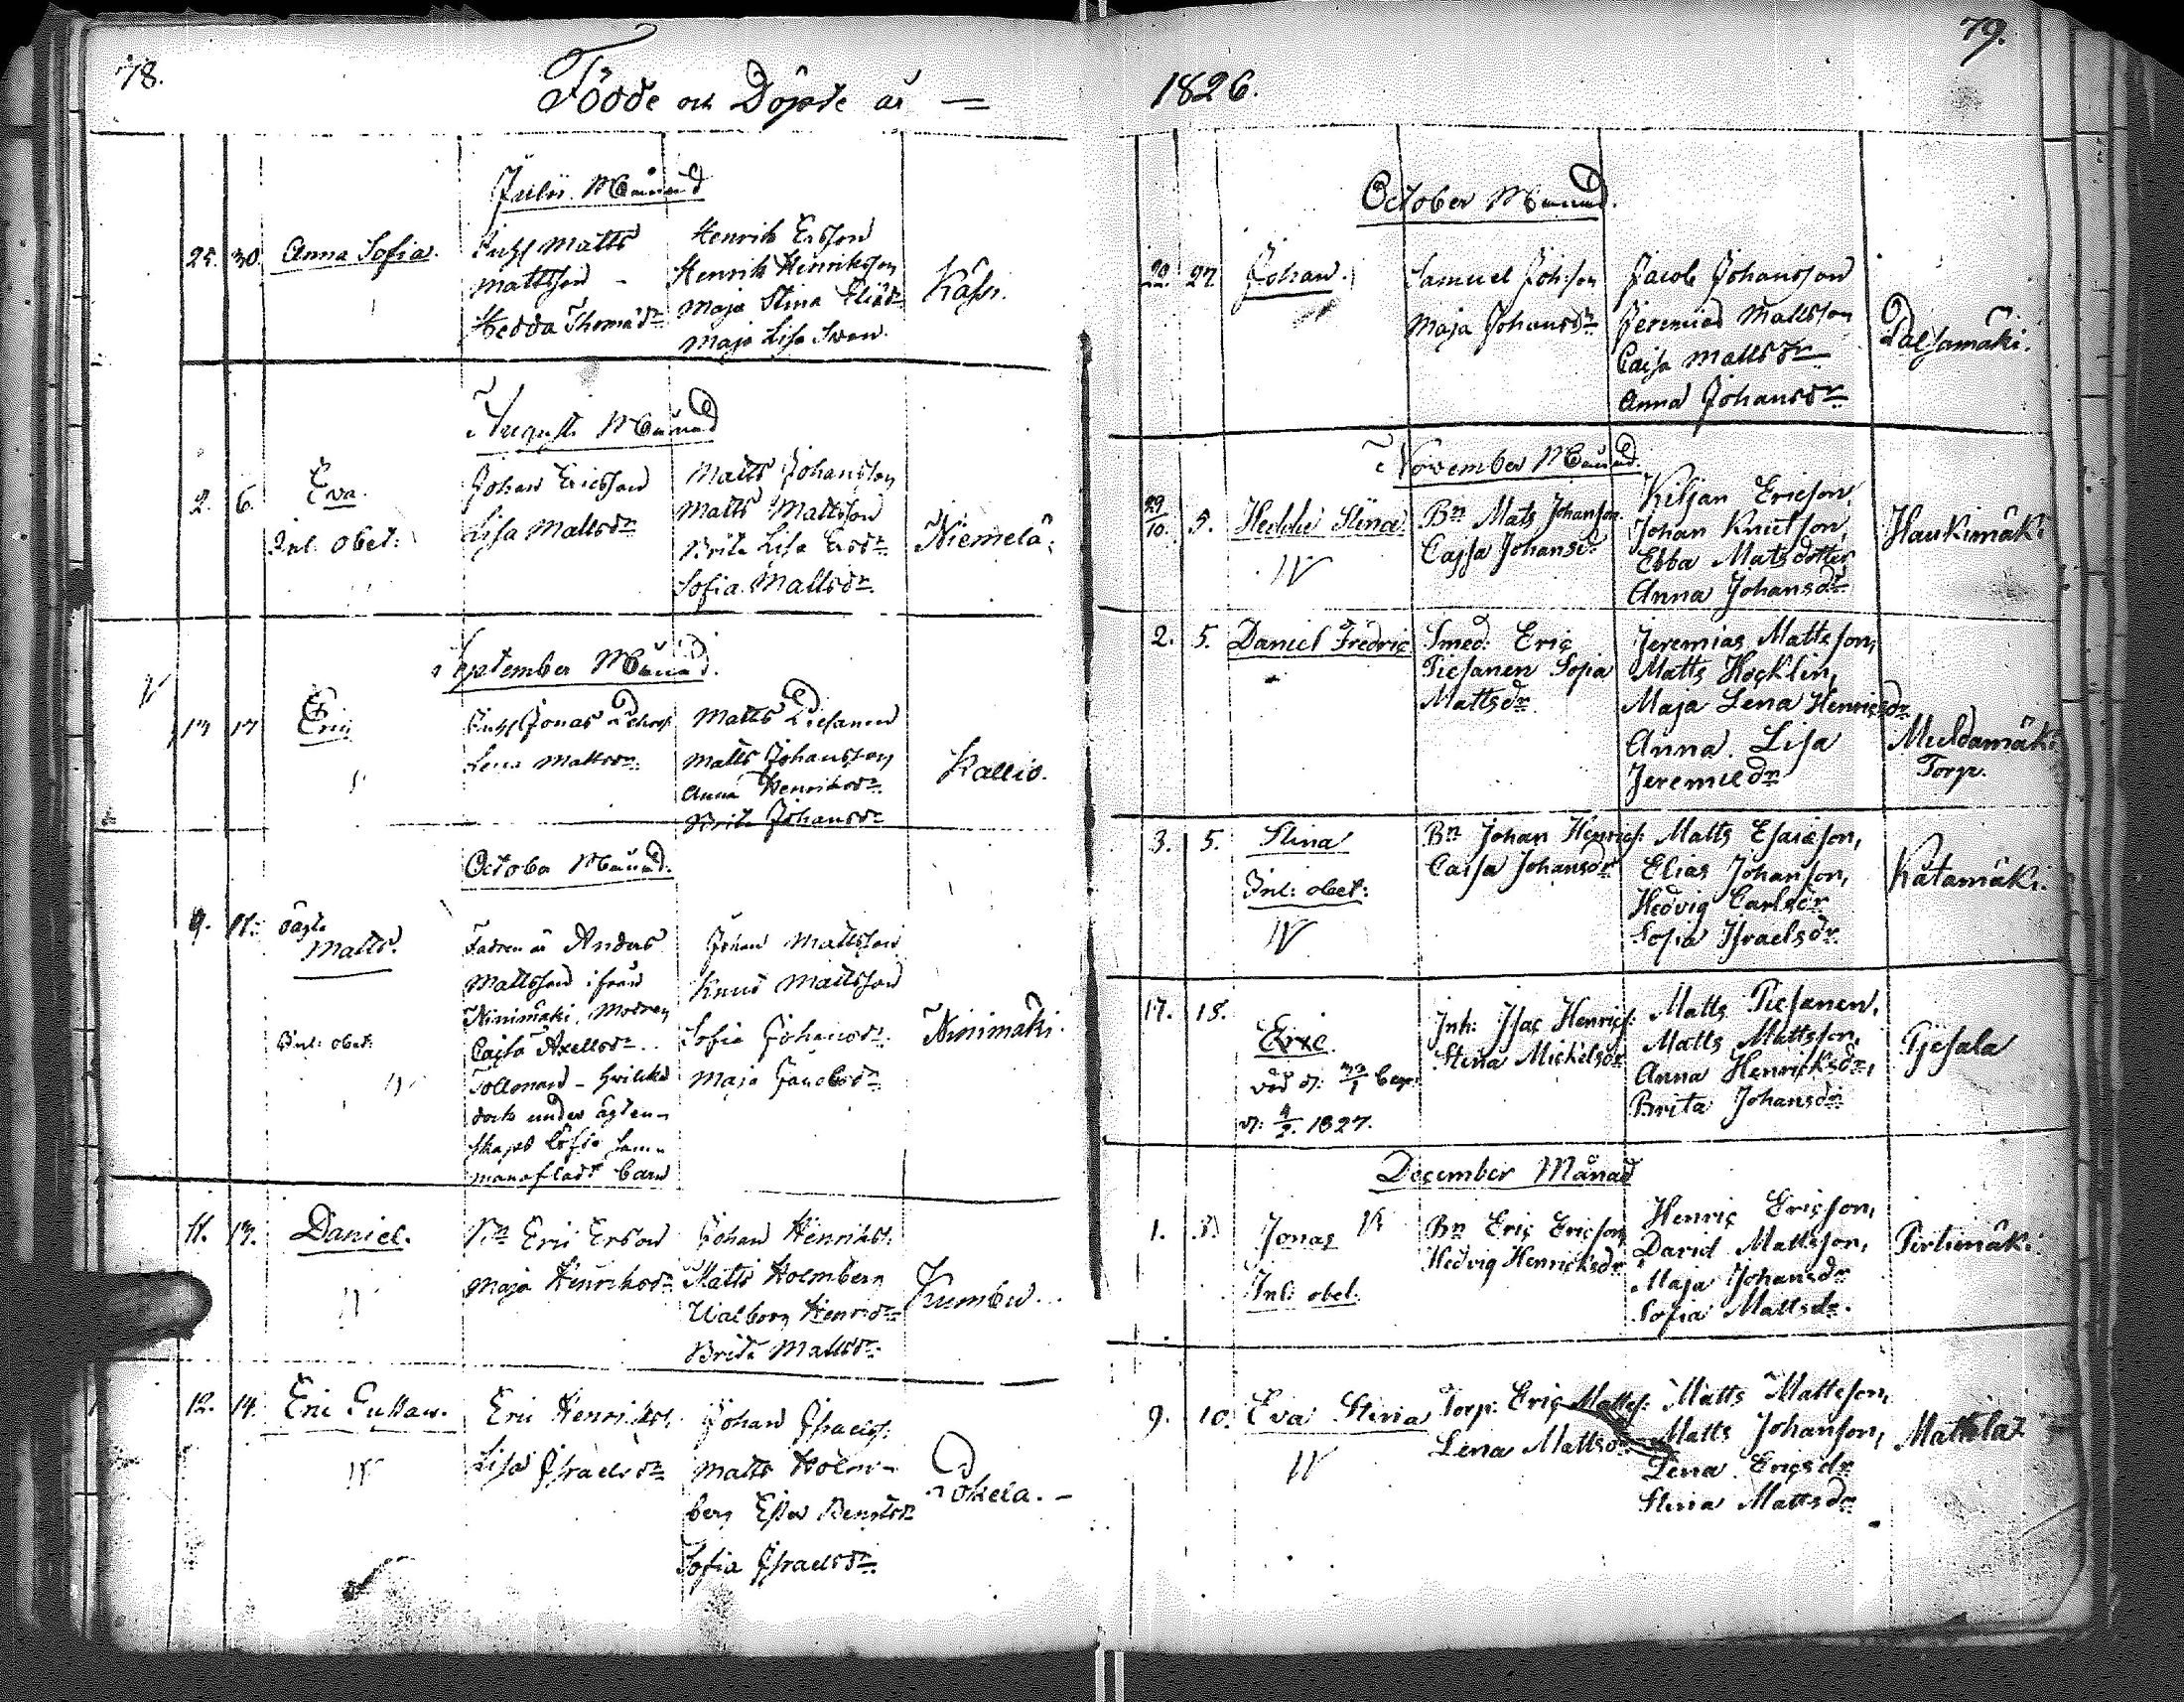 78.
Födde och Döpte år —
Julii Månad
25. 30. Anna Sofia.
Matts
Mattsson
Hedda Thomæd:r
Henrik Ersson
Henrik Henriksson
Maja Stina
Maja Lisa Swan.
Augusti Månad
2. 6. Eva.
Inl: obet:
Johan Ericsson
Lisa Mattsd:r
Matts Johansson
Matts Mattsson
Brita Lisa Ersd:r
Sofia Mattsd:r
Niemelä.
September Månad.
13 17 Eric
Jonas
Lena Mattsd:r
Matts Piesanen
Matts Johansson
Anna Henriksd:r
Brita Johansd:r
Kallio.
October Månad.
9. 11. oägte
Matts.
Inl: obet:
Fadren är Anders
Mattsson ifrån
Ninimäki, Modren
Cajsa Axellsd:r
dock under ägten-
skaps löfte sam-
manafladt barn
Johan Mattsson
Knut Mattsson
Sofia Johansd:r
Maja Jacobsd:r
Ninimäki.
11. 13. Daniel.
B:n Eric Ersson
Maja Henriksd:r
Johan Henrikss:
Matts Holmberg
Walborg Henrsd:r
Brita Mattsd:r
Kumbu.
12. 14. Eric Gustav.
Eric Henrikss:
Lisa Israelsd:r
Johan Israelss:
Matts Holm-
berg Ester Bengtsd:r
Sofia Israelsd:r
79.
1826.
October Månad.
20. 22. Johan.
Samuel Johsson
Maja Johansd:r
Jacob Johansson
Jeremias Mattsson
Cajsa Mattsd:r
Anna Johansd:r
Paljamäki.
November Månad.
29/10. 5. Hedda Stina.
B:n Mats Johanson.
Cajsa Johansd:r
Kiljan Ericson,
Johan Knutson,
Ebba Matsdotter
Anna Johansd:r
Haukimäki
2. 5. Daniel Fredric
Smed: Eric
Piesanen Sofia
Mattsd:r
Jeremias Mattsson,
Matts Hocklin,
Maja Lena Henricsd:r
Anna Lisa
Jeremied:r
Muldamäki
Torp.
3. 5. Stina
Inl: obet:
B:n Johan Henrics:
Caisa Johansd:r
Matts Esaieson,
Elias Johanson,
Hedvig Carlsd:r
Sofia Israelsd:r
Katamäki.
17. 18.
Eric.
1827.
Inh: Isac Henrics:
Stina Mickelsd:r
Matts Piesanen,
Matts Mattsson,
Anna Henricksd:r,
Brita Johansd:r
Pjesala
December Månad
1. 3. Jonas
Inl: obet.
B:n Eric Ericson,
Hedvig Henricksd:r
Henric Ericson,
David Mattsson,
Maja Johansd:r
Sofia Mattsd:r
Pirtimäki.
9. 10. Eva Stina
Torp: Eric Mattss:
Lena Mattsd:r
Matts Mattsson,
Matts Johanson,
Lena Ericsd:r
Stina Mattsd:r
Mattila